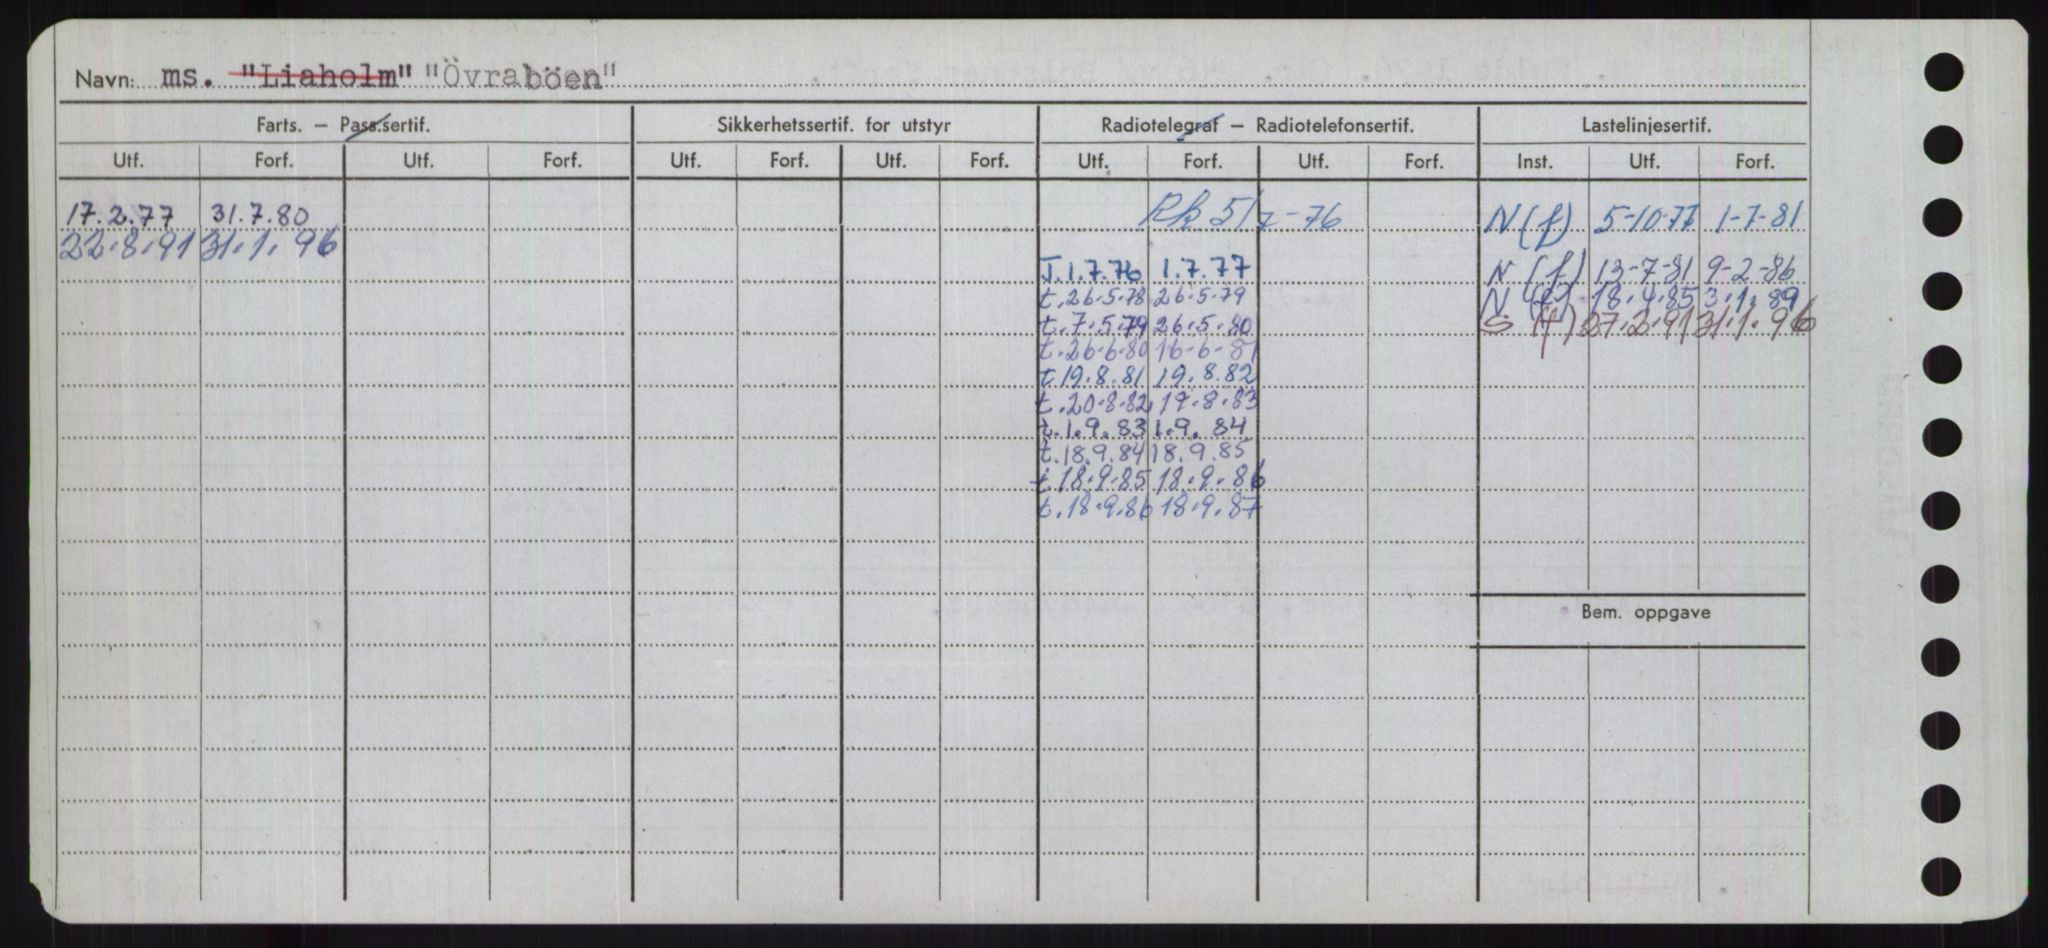 Navn: ms. "Liaholm" "Övraböen"
Farts. – Pass.sertif. Sikkerhetssertif. for utstyr Radiotelegraf – Radiotelefonsertif. Lastelinjesertif.
Utf. Forf. Utf. Forf. Utf. Forf. Utf. Forf. Utf. Forf. Utf. Forf. Inst. Utf. Forf.
17.2.77 31.7.80 Rk 5/7-76 N(f) 5-10-77 1-7-81
22.8.91 31.1.96
J.1.7.76 1.7.77 N(f) 13-7-81 9-2-86
t.26.5.78 26.5.79 N(f) 18.4.85 3.1.89
t.7.5.79 26.5.80 S (f) 27.2.91 31.1.96
t.26.6.80 16-6-81
t.19.8.81 19.8.82
t.20.8.82 19.8.83
t.1.9.83 1.9.84
t.18.9.84 18.9.85
t.18.9.85 18.9.86
t.18.9.86 18.9.87
Bem. oppgave